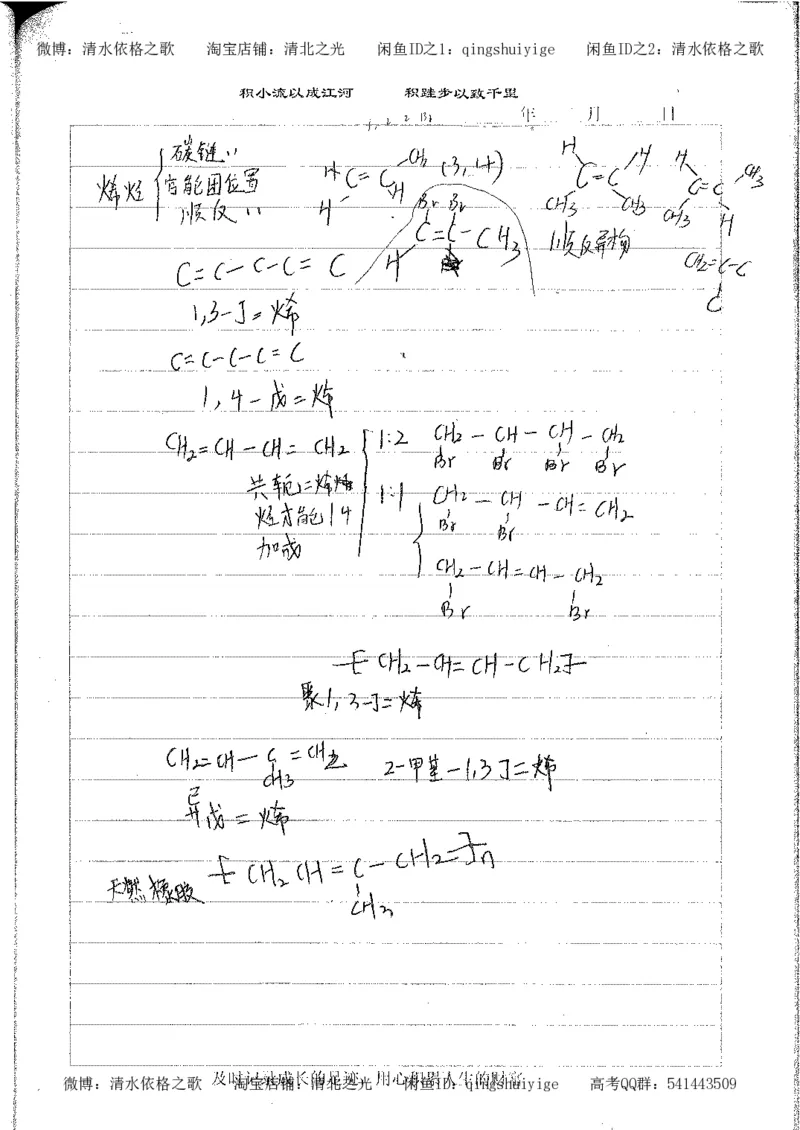 微博：清水依格之歌 淘宝店铺：清北之光 闲鱼ID之1：qingshuiyige 闲鱼ID之2：清水依格之歌
积小流以成江河 积跬步以致千里
年 月 日
烯烃
碳链 〃
官能团位置
顺反 〃
H C=C CH3 (3,4)
H H
Br Br
C=C-CH3
H
H H
C=C
CH3 CH3
顺反异构
H CH3
C=C
CH3 H
CH2=C-C
C
C=C-C-C=C
1,3-丁=烯
C=C-C-C=C
1,4-戊=烯
CH2=CH-CH=CH2
共轭=烯烃
烃才能14
加成
1:2 CH2-CH-CH-CH2
Br Br Br Br
1:1 CH2-CH-CH=CH2
Br Br
CH2-CH=CH-CH2
Br Br
[CH2-CH=CH-CH2]
聚1,3-丁=烯
CH2=CH-C=CH2
CH3
2-甲基-1,3丁=烯
异戊=烯
天燃橡胶 [CH2CH=C-CH2]n
CH3
及时记录成长的足迹 用心积累人生的财富
微博：清水依格之歌 淘宝店铺：清北之光 闲鱼ID：qingshuiyige 高考QQ群：541443509